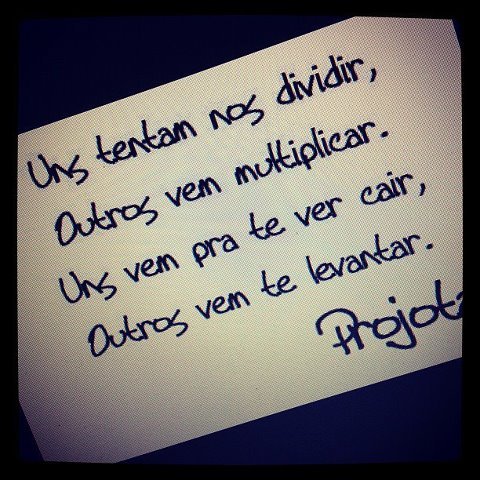 Uns tentam nos dividir,
Outros vem multiplicar.
Uns vem pra te ver cair,
Outros vem te levantar.
Projota